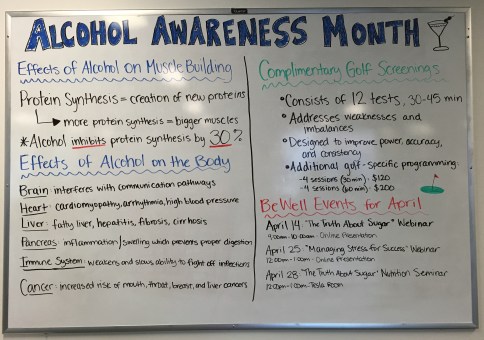 ALCOHOL AWARENESS MONTH
Effects of Alcohol on Muscle Building
Protein Synthesis = creation of new proteins
more protein synthesis = bigger muscles
*Alcohol inhibits protein synthesis by 30%
Effects of Alcohol on the Body
Brain: interferes with communication pathways
Heart: cardiomyopathy, arrhythmia, high blood pressure
Liver: fatty liver, hepatitis, fibrosis, cirrhosis
Pancreas: inflammation/swelling which prevents proper digestion
Immune System: weakens and slows ability to fight off infections
Cancer: increased risk of mouth, throat, breast, and liver cancers
Complimentary Golf Screenings
•Consists of 12 tests, 30-45 min
•Addresses weaknesses and
imbalances
•Designed to improve power, accuracy,
and consistency
•Additional golf-specific programming:
-4 sessions (30 min): $120
-4 sessions (60 min): $200
BeWell Events for April
April 14: "The Truth About Sugar" Webinar
-Online Presentation
April 25: "Managing Stress for Success" Webinar
12:00pm-1:00pm -Online Presentation
April 28: "The Truth About Sugar" Nutrition Seminar
12:00pm-1:00pm-Tesla Room